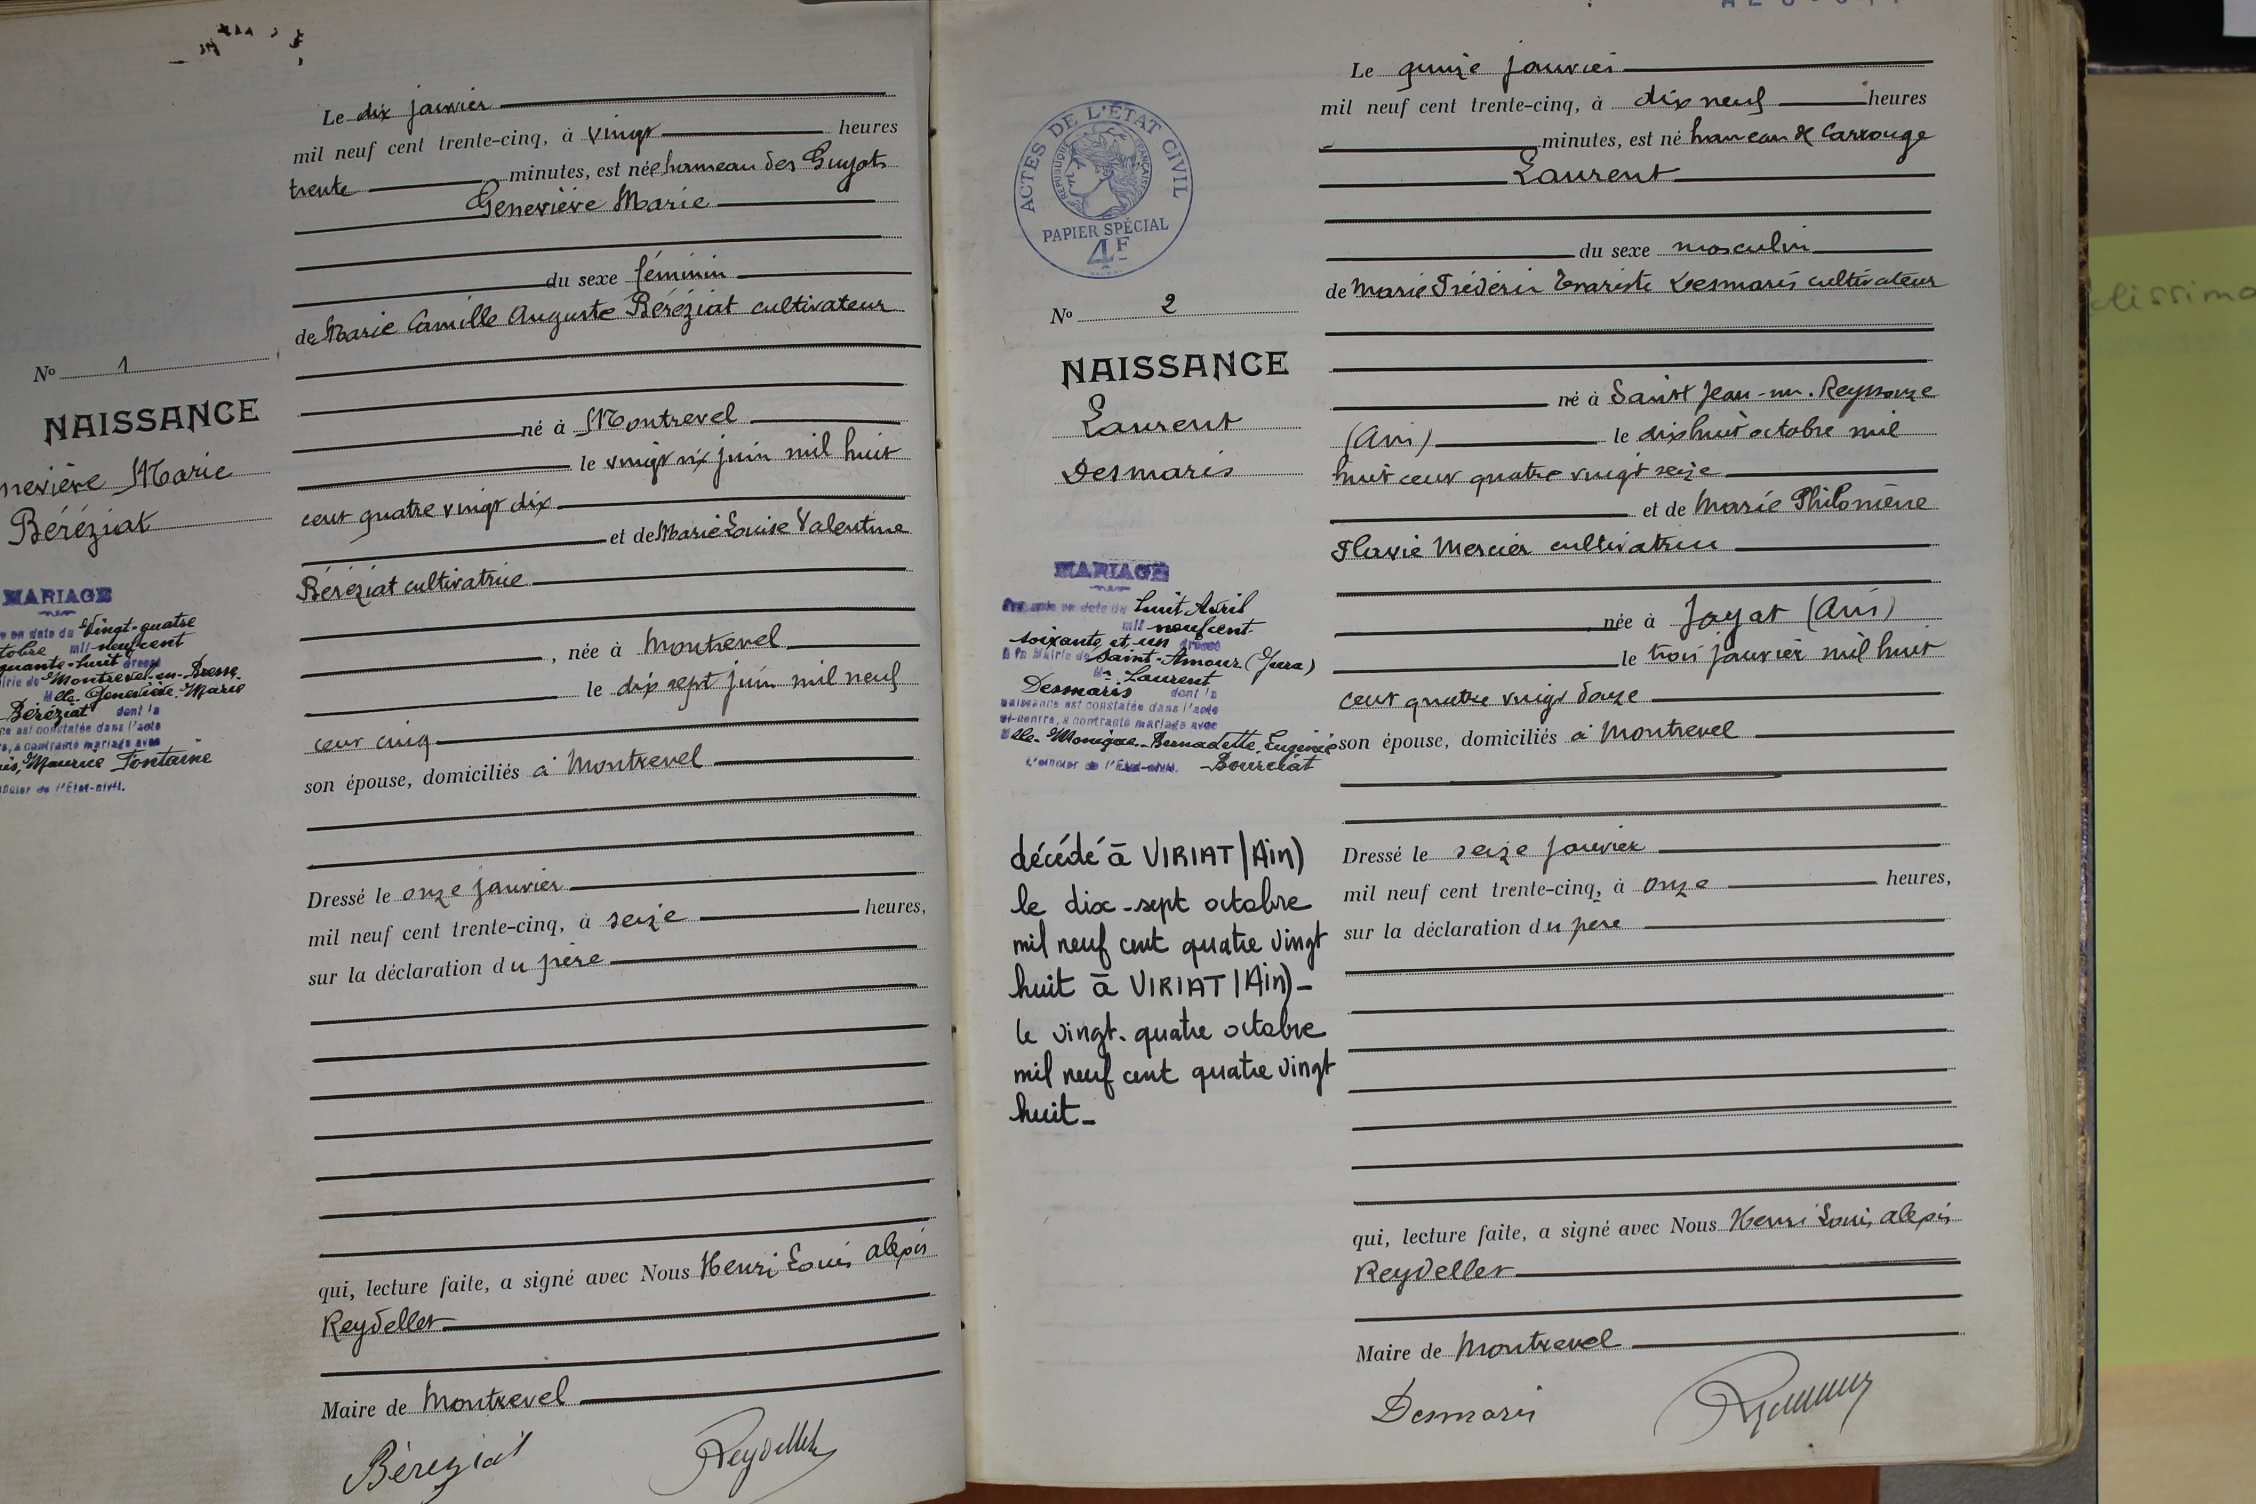 Le dix janvier
mil neuf cent trente-cinq, à vingt heures
trente minutes, est née hameau des Guyots
Geneviève Marie
du sexe féminin
de Marie Camille Auguste Béréziat cultivateur
né à Montrevel
le vingt six juin mil huit
cent quatre vingt dix
et de Marie Louise Valentine
Béréziat cultivatrice
, née à Montrevel
le dix sept juin mil neuf
cent cinq
son épouse, domiciliés à Montrevel
Dressé le onze janvier
mil neuf cent trente-cinq, à seize heures,
sur la déclaration du père
qui, lecture faite, a signé avec Nous Henri Louis Alexis
Reydellet
Maire de Montrevel
Béréziat Reydellet
No 1
NAISSANCE
neviève Marie
Béréziat
MARIAGE
en date du Vingt-quatre
tobre mil neuf cent
quante-huit dressé
irie de Montrevel-en-Bresse
Mlle Geneviève Marie
Béréziat dont la
ce est constatée dans l'acte
, a contracté mariage avec
Maurice Fontaine
l'Etat-civil.
ACTES DE L'ÉTAT CIVIL
RÉPUBLIQUE FRANÇAISE
PAPIER SPÉCIAL
4F
No 2
NAISSANCE
Laurent
Desmaris
MARIAGE
en date du huit Avril
mil neuf cent
soixante et un dressé
à la Mairie de Saint-Amour (Jura)
Mr Laurent
Desmaris dont la
naissance est constatée dans l'acte
ci-contre, a contracté mariage avec
Mlle Monique Bernadette Eugénie
Bourciat
l'Etat-civil.
décédé à VIRIAT (Ain)
le dix-sept octobre
mil neuf cent quatre vingt
huit à VIRIAT (Ain)-
le vingt-quatre octobre
mil neuf cent quatre vingt
huit-
Le quinze janvier
mil neuf cent trente-cinq, à dix neuf heures
minutes, est né hameau de Carrouge
Laurent
du sexe masculin
de Marie Frédéric Evariste Desmaris cultivateur
né à Saint Jean-sur-Reyssouze
(Ain) le dix huit octobre mil
huit cent quatre vingt seize
et de Marie Philomène
Flavie Mercier cultivatrice
née à Jayat (Ain)
le trois janvier mil huit
cent quatre vingt douze
son épouse, domiciliés à Montrevel
Dressé le seize janvier
mil neuf cent trente-cinq, à onze heures,
sur la déclaration du père
qui, lecture faite, a signé avec Nous Henri Louis Alexis
Reydellet
Maire de Montrevel
Desmaris